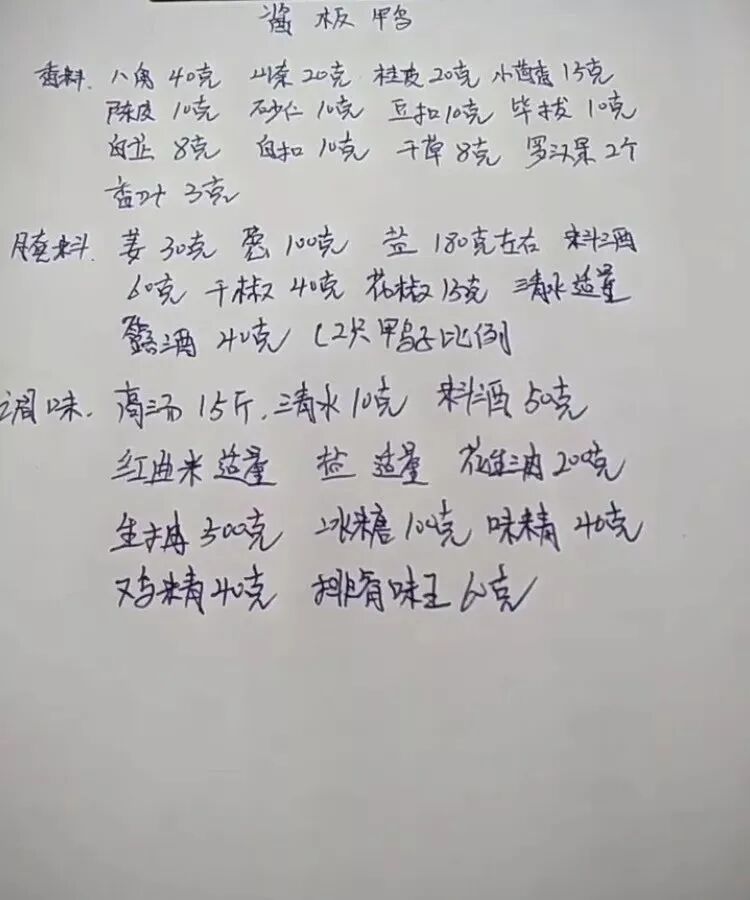 酱板鸭
香料. 八角40克 山奈20克 桂皮20克 小茴香15克
陈皮10克 砂仁10克 豆扣10克 毕拔10克
白芷8克 白扣10克 干草8克 罗汉果2个
香叶3克
腌料. 姜30克 葱100克 盐180克左右 料酒
60克 干椒40克 花椒15克 清水适量
露酒40克 (2只鸭子比例
调味. 高汤15斤. 清水10克 料酒50克
红曲米适量 适量 花生油200克
生抽300克 冰糖100克 味精40克
鸡精40克 排骨味王60克